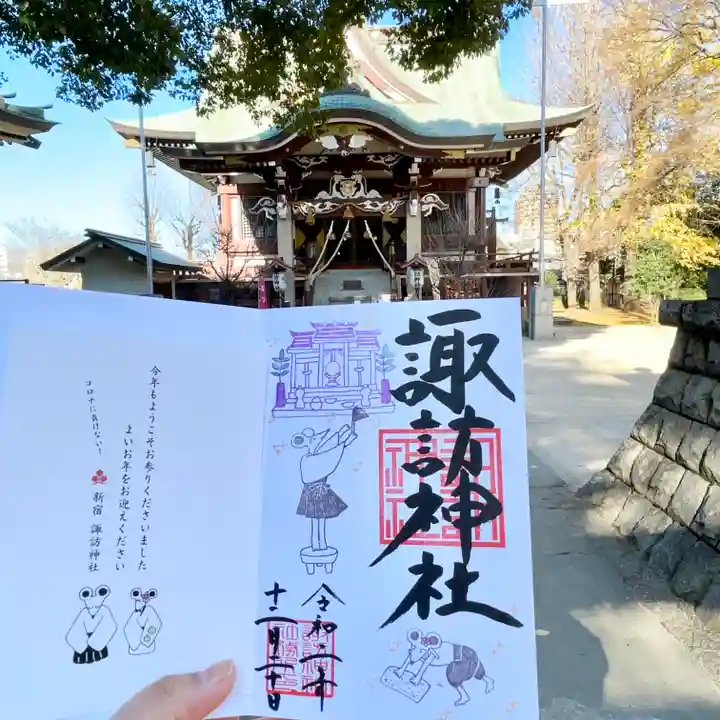 諏訪神社
令和二年
十二月二十日
今年もようこそお参りくださいました
まいお年をお迎えください
コロナに負けない！
新宿 諏訪神社